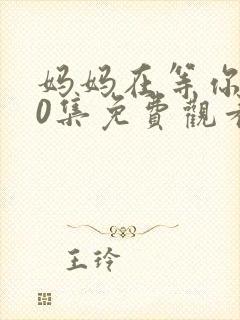 妈妈在等你
0集免费觀
王玲